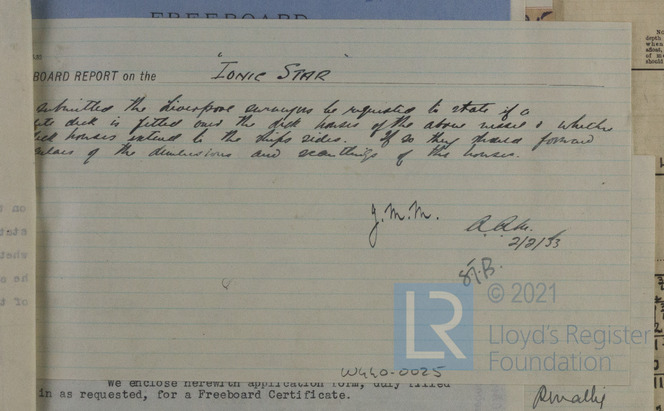 FREEBOARD
BOARD REPORT on the "IONIC STAR"
submitted the Liverpool surveyors be requested to state if a
deck is fitted over the deck houses of the above vessel & whether
houses extend to the ships sides. If so they should forward
of the dimensions and scantlings of the houses.
J.M.M.
2/2/33
S.T.B.
LR
© 2021
Lloyd's Register
Foundation
W440-0025
We enclose herewith application form, duly filled
in as requested, for a Freeboard Certificate.